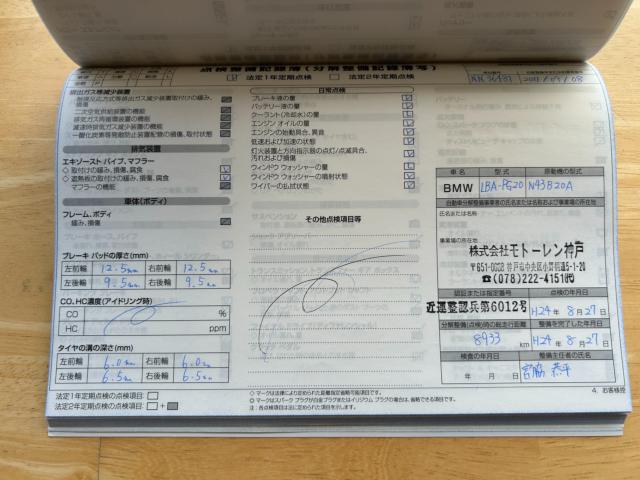 点検整備記録簿(分解整備記録簿)
法定1年定期点検 法定2年定期点検
排出ガス等減少装置
二次空気供給装置の機能
排気ガス再循環装置の機能
減速時排気ガス減少装置の機能
一酸化炭素等発散防止装置配管の損傷、取付状態
排気装置
エキゾースト パイプ、マフラー
◇ 取付けの緩み、損傷、腐食
◇ 遮熱板の取付けの緩み、損傷、腐食
マフラーの機能
車体(ボディ)
フレーム、ボディ
緩み、損傷
ブレーキ パッドの厚さ(mm)
左前輪 12.5mm 右前輪 12.5mm
左後輪 9.5mm 右後輪 9.5mm
CO、HC濃度(アイドリング時)
CO %
HC ppm
タイヤの溝の深さ(mm)
左前輪 6.0mm 右前輪 6.0mm
左後輪 6.5mm 右後輪 6.5mm
法定1年定期点検の点検項目:
法定2年定期点検の点検項目: +
日常点検
ブレーキ液の量
バッテリー液の量
クーラント(冷却水)の量
エンジン オイルの量
エンジンの始動具合、異音
低速および加速の状態
灯火装置と方向指示器の点灯/点滅具合、
汚れおよび損傷
ウィンドウ ウォッシャーの量
ウィンドウ ウォッシャーの噴射状態
ワイパーの払拭状態
その他点検項目等
◇ マークは法律により定められた距離指定省略可能項目です。
注:各点検項目は法に定められた項目を示します。
車名 型式 原動機の型式
BMW LBA-PG20 N43B20A
自動車分解整備事業者の氏名または名称および事業場の所在地
氏名または名称
事業場の所在地
株式会社モトーレン神戸
〒651-0083 神戸市中央区小野柄通5-1-20
☎(078)222-4151㈹
認証または指定番号 点検の年月日
近運整認兵第6012号 H24年 8月27日
分解整備(点検)時の総走行距離 整備を完了した年月日
8933 km H24年 8月27日
検査の年月日 整備主任者の氏名
年 月 日 宮脇 恭平
4. お客様控